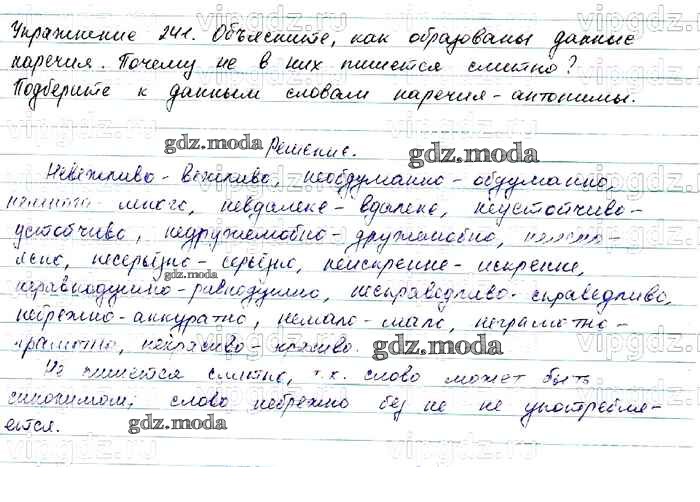 Упражнение 241. Объясните, как образованы данные
наречия. Почему не в них пишется слитно?
Подберите к данным словам наречия-антонимы.
Решение.
Невежливо - вежливо, необдуманно - обдуманно,
много, невдалеке - вдалеке, неустойчиво -
устойчиво, недружелюбно - дружелюбно,
несерьёзно - серьёзно, неискренне - искренне,
неравнодушно - равнодушно, несправедливо - справедливо,
небрежно - аккуратно, немало - мало, неграмотно -
грамотно, некрасиво - красиво.
Не пишется слитно, т.к. слово может быть
синонимом; слово небрежно без не не употребля-
ется.
gdz.moda
gdz.moda
gdz.moda
gdz.moda
gdz.moda
vipgdz.ru